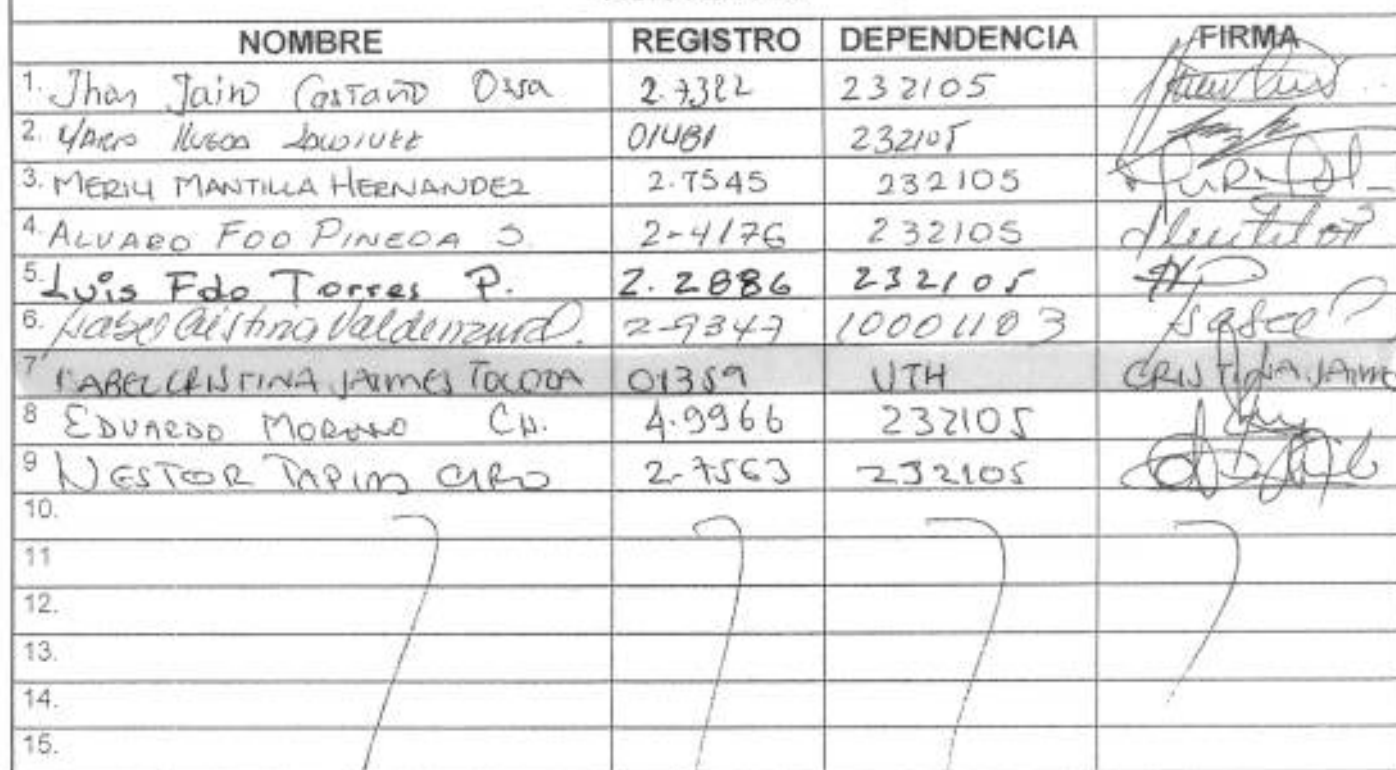 NOMBRE REGISTRO DEPENDENCIA FIRMA
1. Jhan Jairo Castaño Ossa 2.7382 232105
2. 01481 232105
3. MERILY MANTILLA HERNANDEZ 2.7545 232105
4. ALVARO FDO PINEDA S. 2-4176 232105
5. Luis Fdo Torres P. 2.2886 232105
6. Isabel Cristina 2-9347 10001103
7 CRISTINA JAIMES 01359 UTH CRISTINA JAIMES
8 EDUARDO MORENO CH. 4.9966 232105
9 NESTOR TAPIAS CIRO 2-7563 232105
10.
11
12.
13.
14.
15.